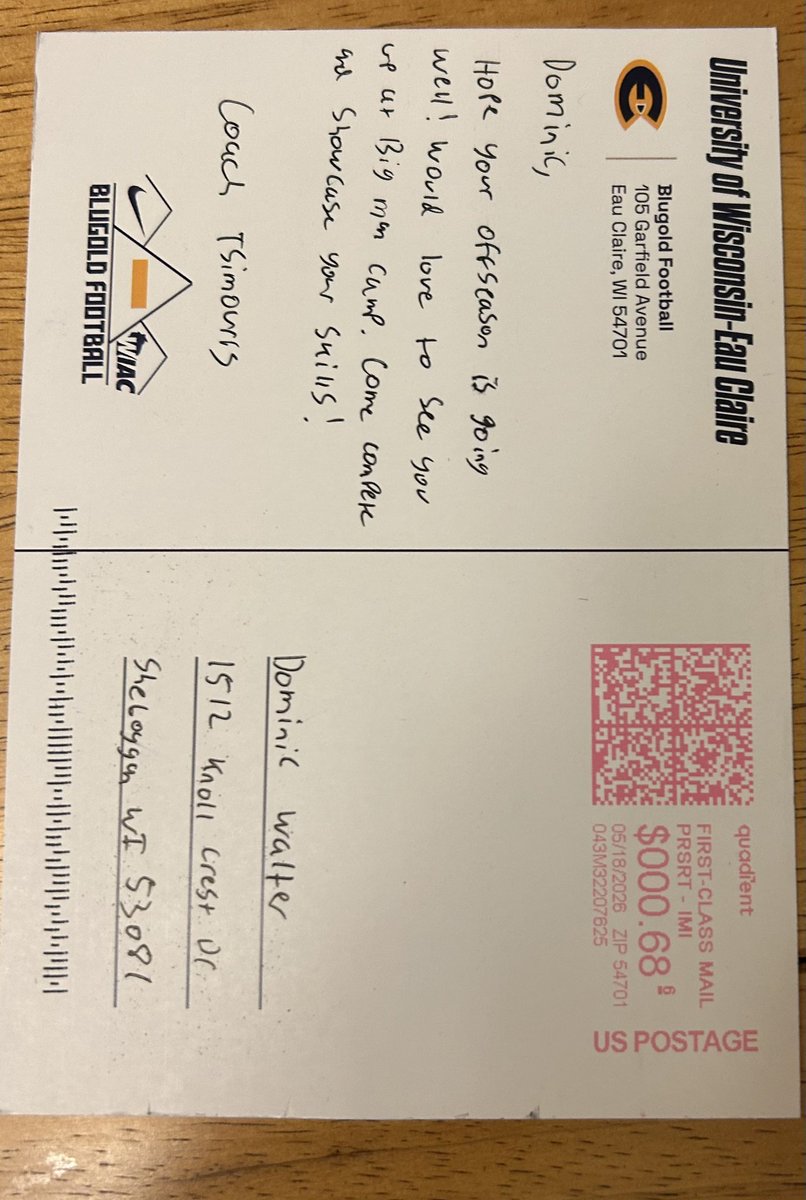 University of Wisconsin-Eau Claire
Blugold Football
105 Garfield Avenue
Eau Claire, WI 54701
Dominic,
Hope your offseason is going
well! Would love to see you
up at Big man camp. Come compete
and showcase your skills!
Coach Tsimouris
WIAC
BLUGOLD FOOTBALL
quadient
FIRST-CLASS MAIL
PRSRT - IMI
$000.68⁶
05/18/2026 ZIP 54701
043M32207625
US POSTAGE
Dominic Walter
1512 Knoll Crest Dr
Sheboygan WI 53081